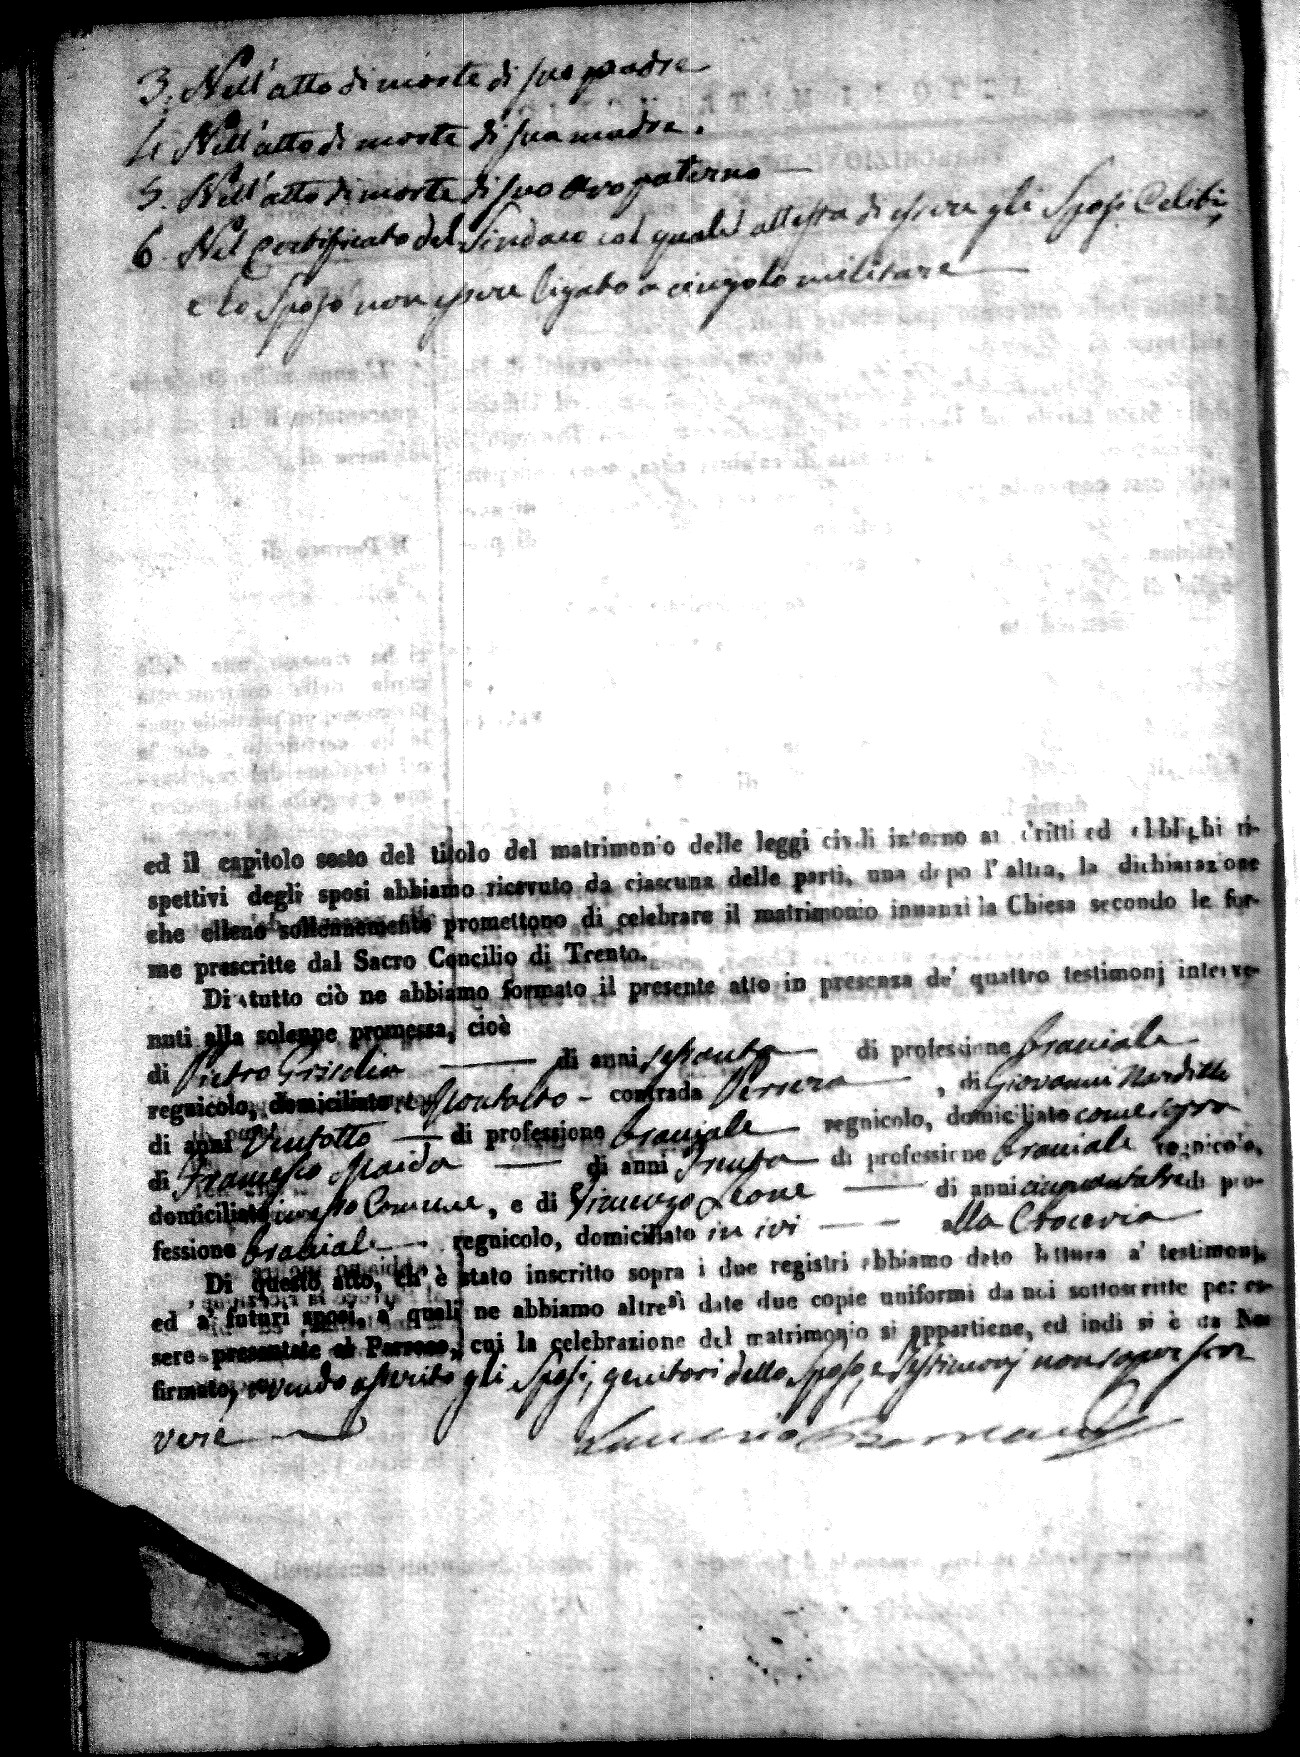 3. Nell'atto di morte di suo padre
4. Nell'atto di morte di sua madre.
5. Nell'atto di morte di suo avo paterno
6. Nel Certificato del Sindaco col quale attesta di essere gli Sposi Celibi,
e lo Sposo non essere ligato a cingolo militare
ed il capitolo sesto del titolo del matrimonio delle leggi civili intorno ai dritti ed obblighi ri-
spettivi degli sposi abbiamo ricevuto da ciascuna delle parti, una dopo l'altra, la dichiarazione
che elleno sollennemente promettono di celebrare il matrimonio innanzi la Chiesa secondo le for-
me prescritte dal Sacro Concilio di Trento.
Di tutto ciò ne abbiamo formato il presente atto in presenza de' quattro testimonj interve-
nuti alla solenne promessa, cioè
di Pietro Grisolia di anni sessanta di professione bracciale
regnicolo, domiciliato Montalto - contrada , di Giovanni Nardelli
di anni Ventotto di professione bracciale regnicolo, domiciliato come sopra
di Francesco Maida di anni trenta di professione bracciale regnicolo,
domiciliato in esso Comune, e di Vincenzo Leone di anni cinquantatre di pro-
fessione bracciale regnicolo, domiciliato in ivi alla Crocevia
Di questo atto, ch'è stato inscritto sopra i due registri abbiamo dato lettura a' testimonj,
ed a' futuri sposi, a' quali ne abbiamo altresì date due copie uniformi da noi sottoscritte per es-
sere presentate al Parroco, cui la celebrazione del matrimonio si appartiene, ed indi si è da Noi
firmato, avendo asserito gli Sposi, genitori dello Sposo, e Testimonj non saper scri
vere